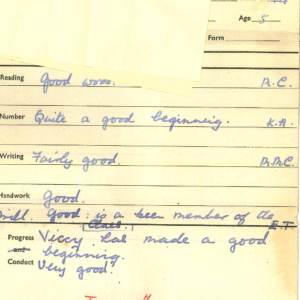 Age 5
Form
Reading Good work. B.C.
Number Quite a good beginning. K.A.
Writing Fairly good. B.M.C.
Handwork Good.
Drill. Good: is a keen member of the
Class. E.T.
Progress Viccy has made a good
and beginning.
Conduct Very good.